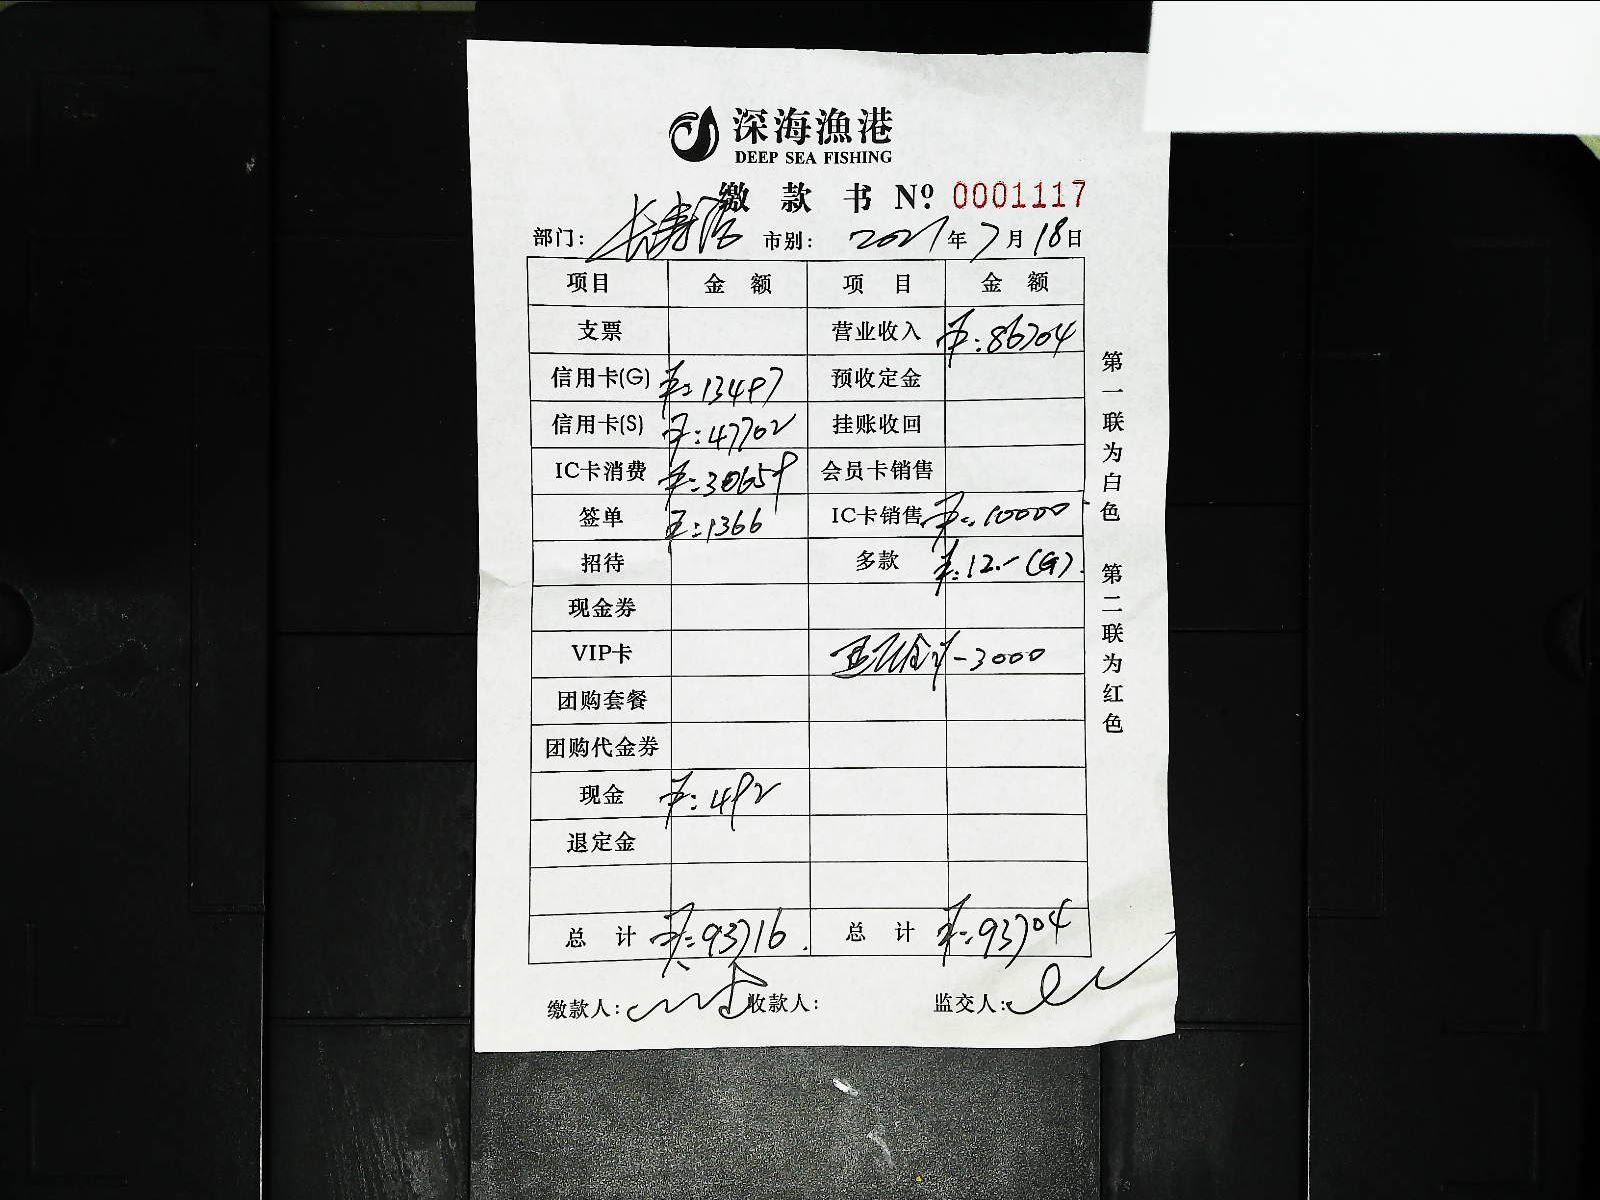 深海漁港
DEEP SEA FISHING
缴款书 Nº 0001117
部门: 长寿店 市别: 2021年7月18日
项目 金额 项目 金额
支票 营业收入 ¥:86704
信用卡(G) ¥:13497 预收定金
信用卡(S) ¥:47702 挂账收回
IC卡消费 ¥:30659 会员卡销售
签单 ¥:1366 IC卡销售 ¥:10000
招待 多款 ¥:12.-(G).
现金券
VIP卡 -3000
团购套餐
团购代金券
现金 ¥:492
退定金
总计 ¥:93716. 总计 ¥:93704
缴款人: 收款人: 监交人:
第一联为白色 第二联为红色